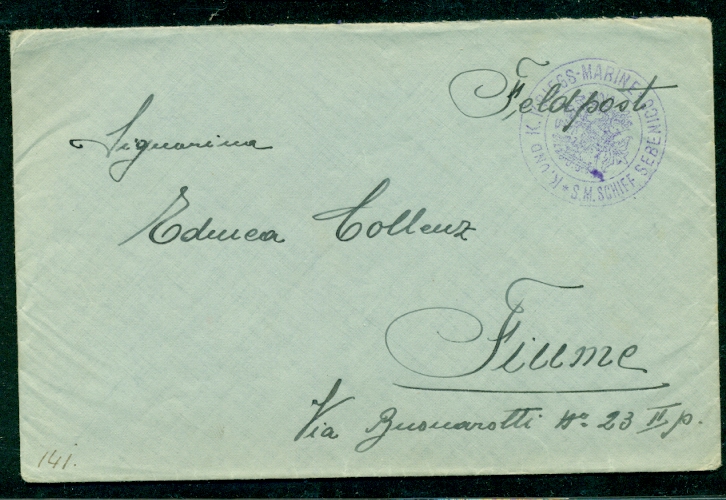 Feldpost
K. UND K. KRIEGS-MARINE
S.M. SCHIFF
Signorina
Collenz
Fiume
Via Buonarotti No 23 II p.
141.